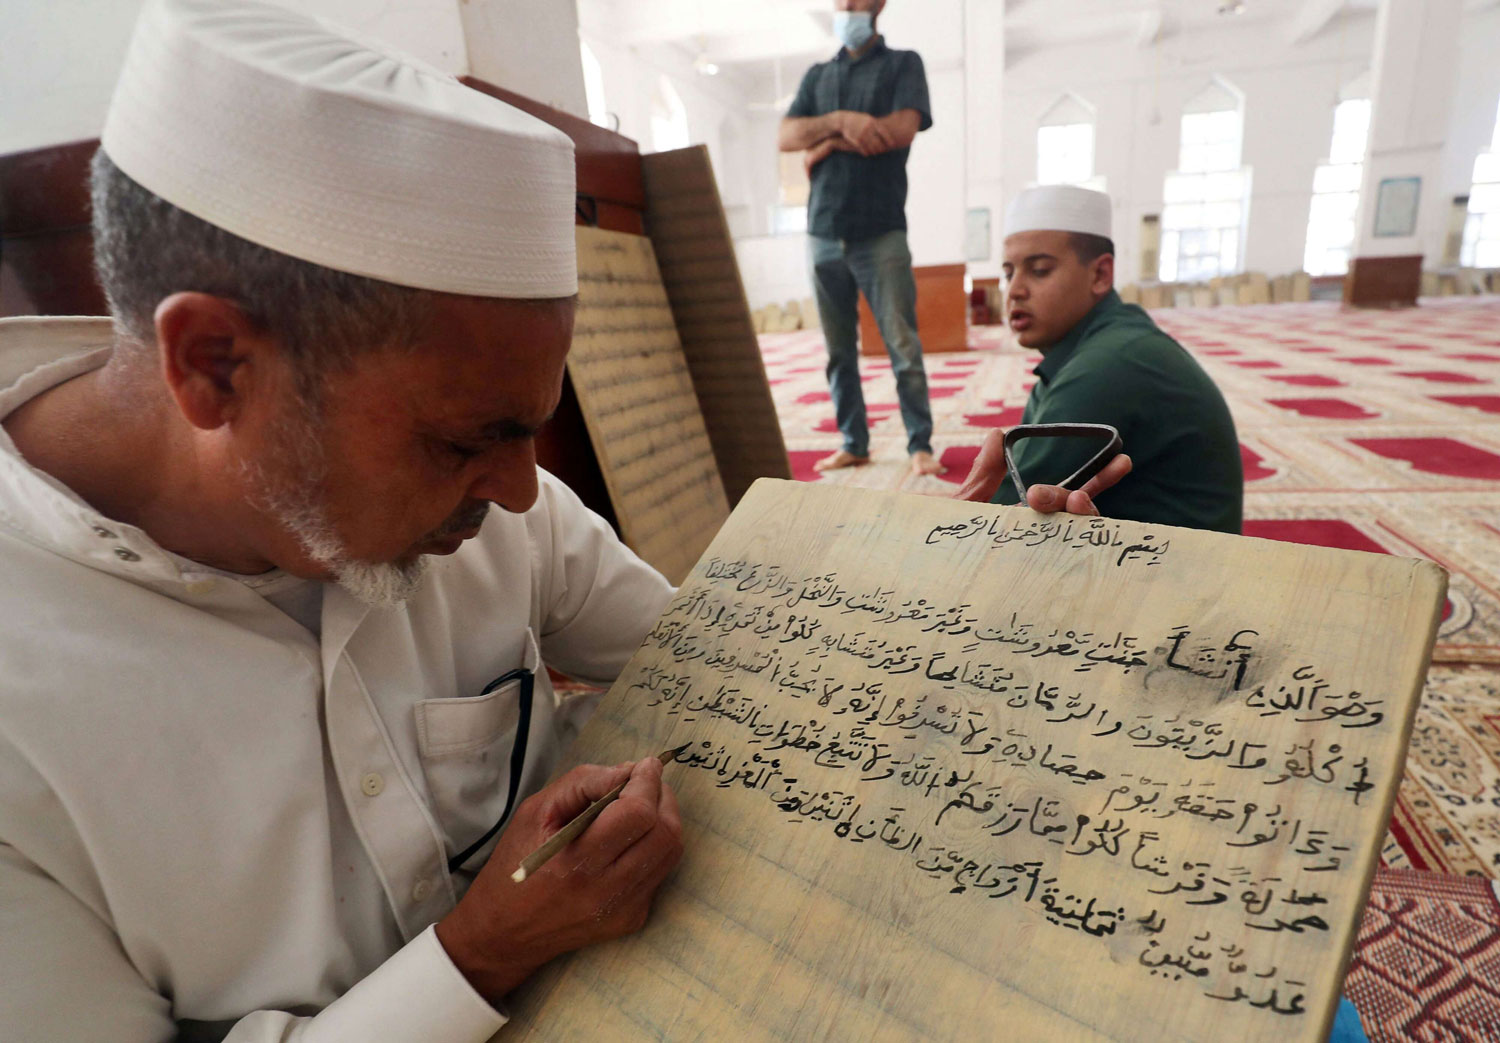 بِسْمِ اللَّهِ الرَّحْمَٰنِ الرَّحِيمِ
وَهْوَ الَّذِي أَنْشَأَ جَنَّٰتٍ مَّعْرُوشَٰتٍ وَغَيْرَ مَعْرُوشَٰتٍ وَالنَّخْلَ وَالزَّرْعَ مُخْتَلِفاً
اُكْلُهُ وَالزَّيْتُونَ وَالرُّمَّانَ مُتَشَٰبِهاً وَغَيْرَ مُتَشَٰبِهٍ كُلُوا مِنْ ثَمَرِهِ إِذَا أَثْمَرَ
وَءَاتُوا حَقَّهُ يَوْمَ حِصَادِهِ وَلَا تُسْرِفُوا إِنَّهُ لَا يُحِبُّ الْمُسْرِفِينَ وَمِنَ الْأَنْعَٰمِ
حَمُولَةً وَفَرْشاً كُلُوا مِمَّا رَزَقَكُمُ اللَّهُ وَلَا تَتَّبِعُوا خُطْوَٰتِ الشَّيْطَٰنِ إِنَّهُ لَكُمْ
عَدُوٌّ مُّبِينٌ ثَمَٰنِيَةَ أَزْوَاجٍ مِّنَ الضَّأْنِ اِثْنَيْنِ وَمِنَ الْمَعْزِ اِثْنَيْنِ